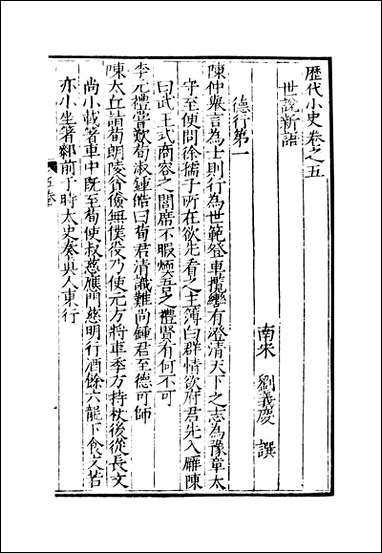 歷代小史卷之五
世說新語
南宋 劉義慶 撰
德行第一
陳仲舉言為士則行為世範登車攬轡有澄清天下之志為豫章太
守至便問徐孺子所在欲先看之主薄白群情欲府君先入廨陳
曰武王式商容之閭席不暇煗吾之禮賢有何不可
李元禮嘗歎荀淑鍾皓曰荀君清識難尚鍾君至德可師
陳太丘詣荀朗陵貧儉無僕役乃使元方將車季方持杖後從長文
尚小載著車中既至荀使叔慈應門慈明行酒餘六龍下食文若
亦小坐著膝前于時太史奏真人東行